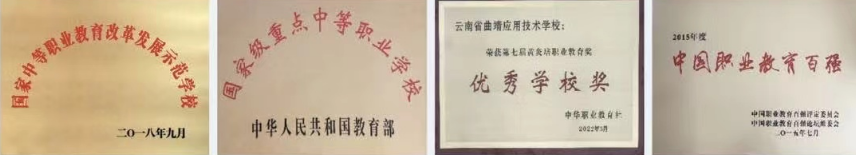 国家中等职业教育改革发展示范学校
二〇一八年九月
国家级重点中等职业学校
中华人民共和国教育部
云南省曲靖应用技术学校:
荣获第七届黄炎培职业教育奖
优秀学校奖
中华职业教育社
2022年3月
2015年度
中国职业教育百强
中国职业教育百强评定委员会
中国职业教育百强论坛组委会
二〇一五年七月